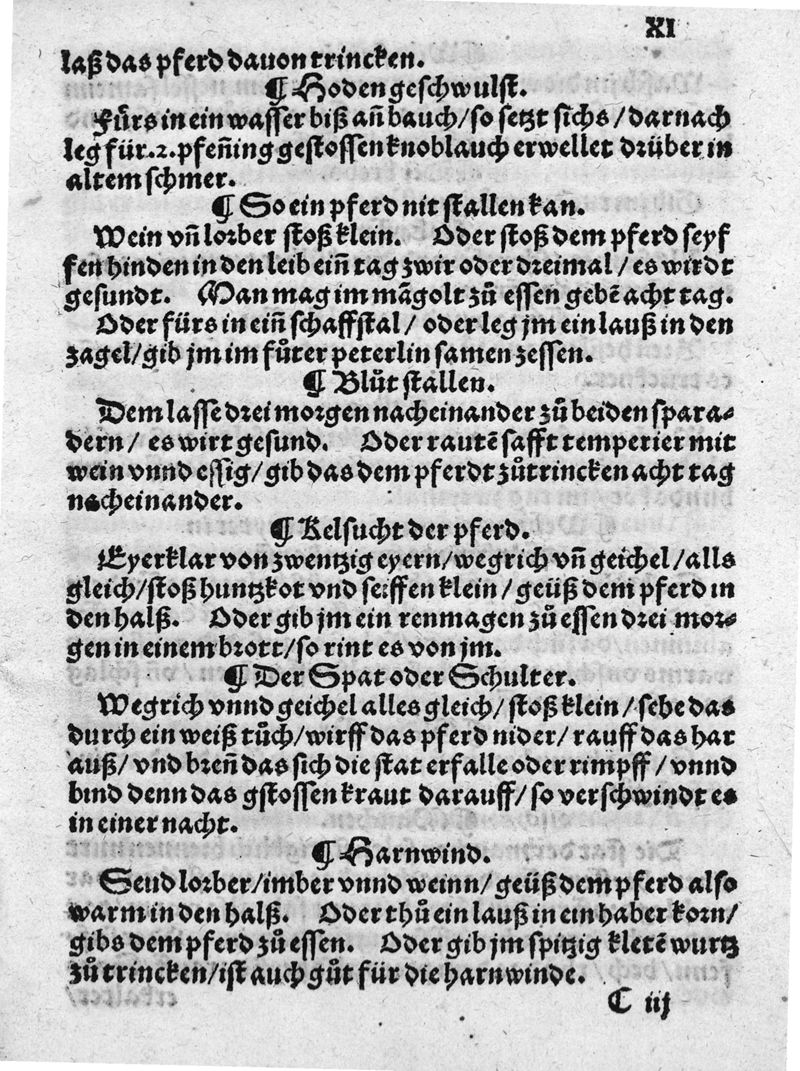 XI
laß das pferd dauon trincken.
¶ Hoden geschwulst.
Fürs in ein wasser biß añ bauch/so setzt sichs/darnach
leg für.2.pfeñing gestossen knoblauch erwellet drüber in
altem schmer.
¶ So ein pferd nit stallen kan.
Wein vñ lorber stoß klein. Oder stoß dem pferd seyf
fen hinden in den leib eiñ tag zwir oder dreimal/es wirdt
gesundt. Man mag im mãgolt zů essen gebẽ acht tag.
Oder fürs in eiñ schaffstal/ oder leg jm ein lauß in den
zagel/gib jm im fůter peterlin samen zessen.
¶ Blůt stallen.
Dem lasse drei morgen nacheinander zů beiden spara⸗
dern/ es wirt gesund. Oder rautẽ safft temperier mit
wein vnnd essig/gib das dem pferdt zůtrincken acht tag
nacheinander.
¶ Kelsucht der pferd.
Eyerklar von zwentzig eyern/wegrich vñ geichel/alls
gleich/stoß huntzkot vnd seiffen klein/geüß dem pferd in
den halß. Oder gib jm ein renmagen zů essen drei mor⸗
gen in einem brott/so rint es von jm.
¶ Der Spat oder Schulter.
Wegrich vnnd geichel alles gleich/stoß klein/sehe das
durch ein weiß tůch/wirff das pferd nider/ rauff das har
auß/ vnd breñ das sich die stat erfalle oder rimpff/vnnd
bind denn das gstossen kraut darauff/so verschwindt es
in einer nacht.
¶ Harnwind.
Seud lorber/imber vnnd weinn/geüß dem pferd also
warm in den halß. Oder thů ein lauß in ein haber korn/
gibs dem pferd zů essen. Oder gib jm spitzig kletẽ wurtz
zů trincken/ist auch gůt für die harnwinde.
C iij